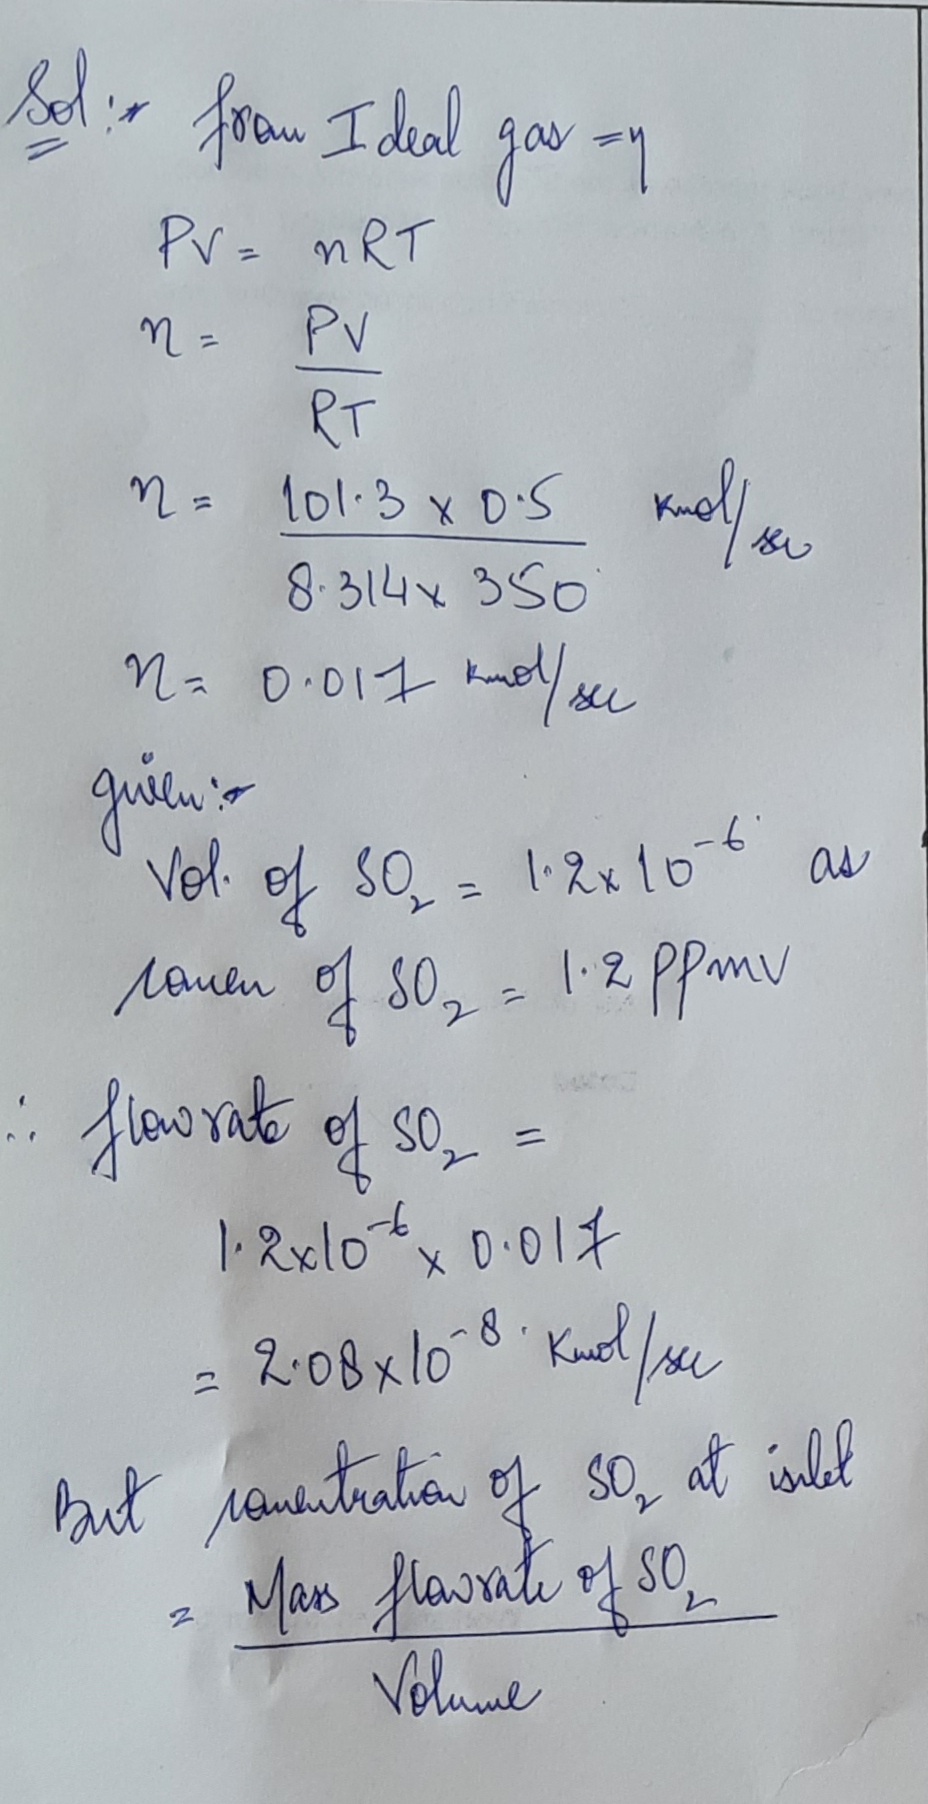 Sol:-
from Ideal gas eq
PV = nRT
n = PV
RT
n = 101.3 x 0.5 Kmol/sec
8.314 x 350
n = 0.017 Kmol/sec
given:-
Vol. of SO2 = 1.2x10^-6 as
concn of SO2 = 1.2 ppmv
∴ flowrate of SO2 =
1.2x10^-6 x 0.017
= 2.08x10^-8 Kmol/sec
But concentration of SO2 at inlet
= Mass flowrate of SO2
Volume